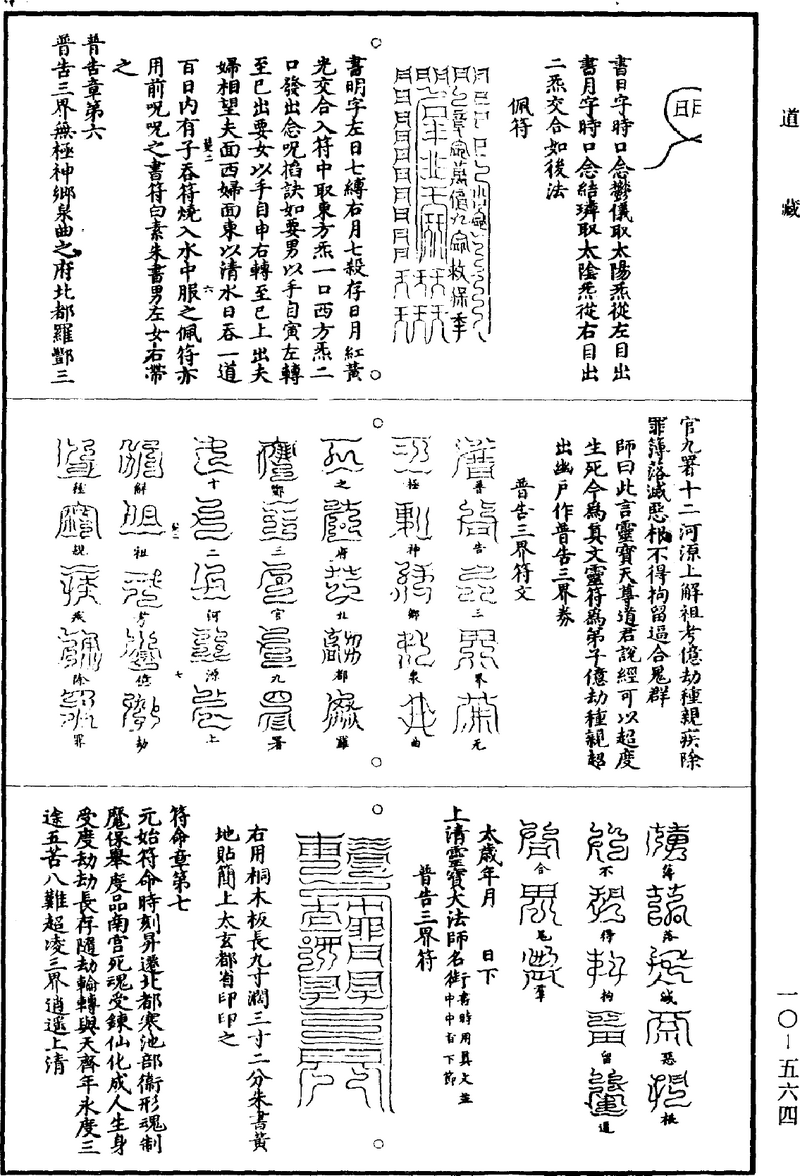 道藏
明
書日字時口念欝儀取太陽炁從左目出
書月字時口念結璘取太陰炁從右目出
二炁交合如後法
佩符
書明字左日七縛右月七殺存日月紅黃
光交合入符中取東方炁一口西方炁二
口發出念呪掐訣如要男以手自寅左轉
至巳出要女以手自申右轉至巳上出夫
婦相望夫面西婦面東以清水日吞一道
百日內有子吞符燒入水中服之佩符亦
用前呪呪之書符白素朱書男左女右帶
之
普告章第六
普告三界無極神鄉泉曲之府北都羅酆三
官九署十二河源上解祖考億劫種親疾除
罪簿落滅惡根不得拘留逼合鬼群
師曰此言靈寶天尊道君說經可以超度
生死今為真文靈符為弟子億劫種親超
出幽戶作普告三界券
普告三界符文
普告三界无
極神鄉泉曲
之府北都羅
酆三官九署
十二河源上
解祖考億劫
種親疾除罪
簿落滅惡根
不得拘留逼
合鬼羣
太歲年月 日下
上清靈寶大法師名銜書時用真文並中中有下節
普告三界符
右用桐木板長九寸濶三寸二分朱書黃
地貼簡上太玄都省印印之
符命章第七
元始符命時刻昇遷北都寒池部衛形魂制
魔保舉度品南宮死魂受鍊仙化成人生身
受度劫劫長存隨劫輪轉與天齊年永度三
途五苦八難超凌三界逍遥上清
一〇-五六四